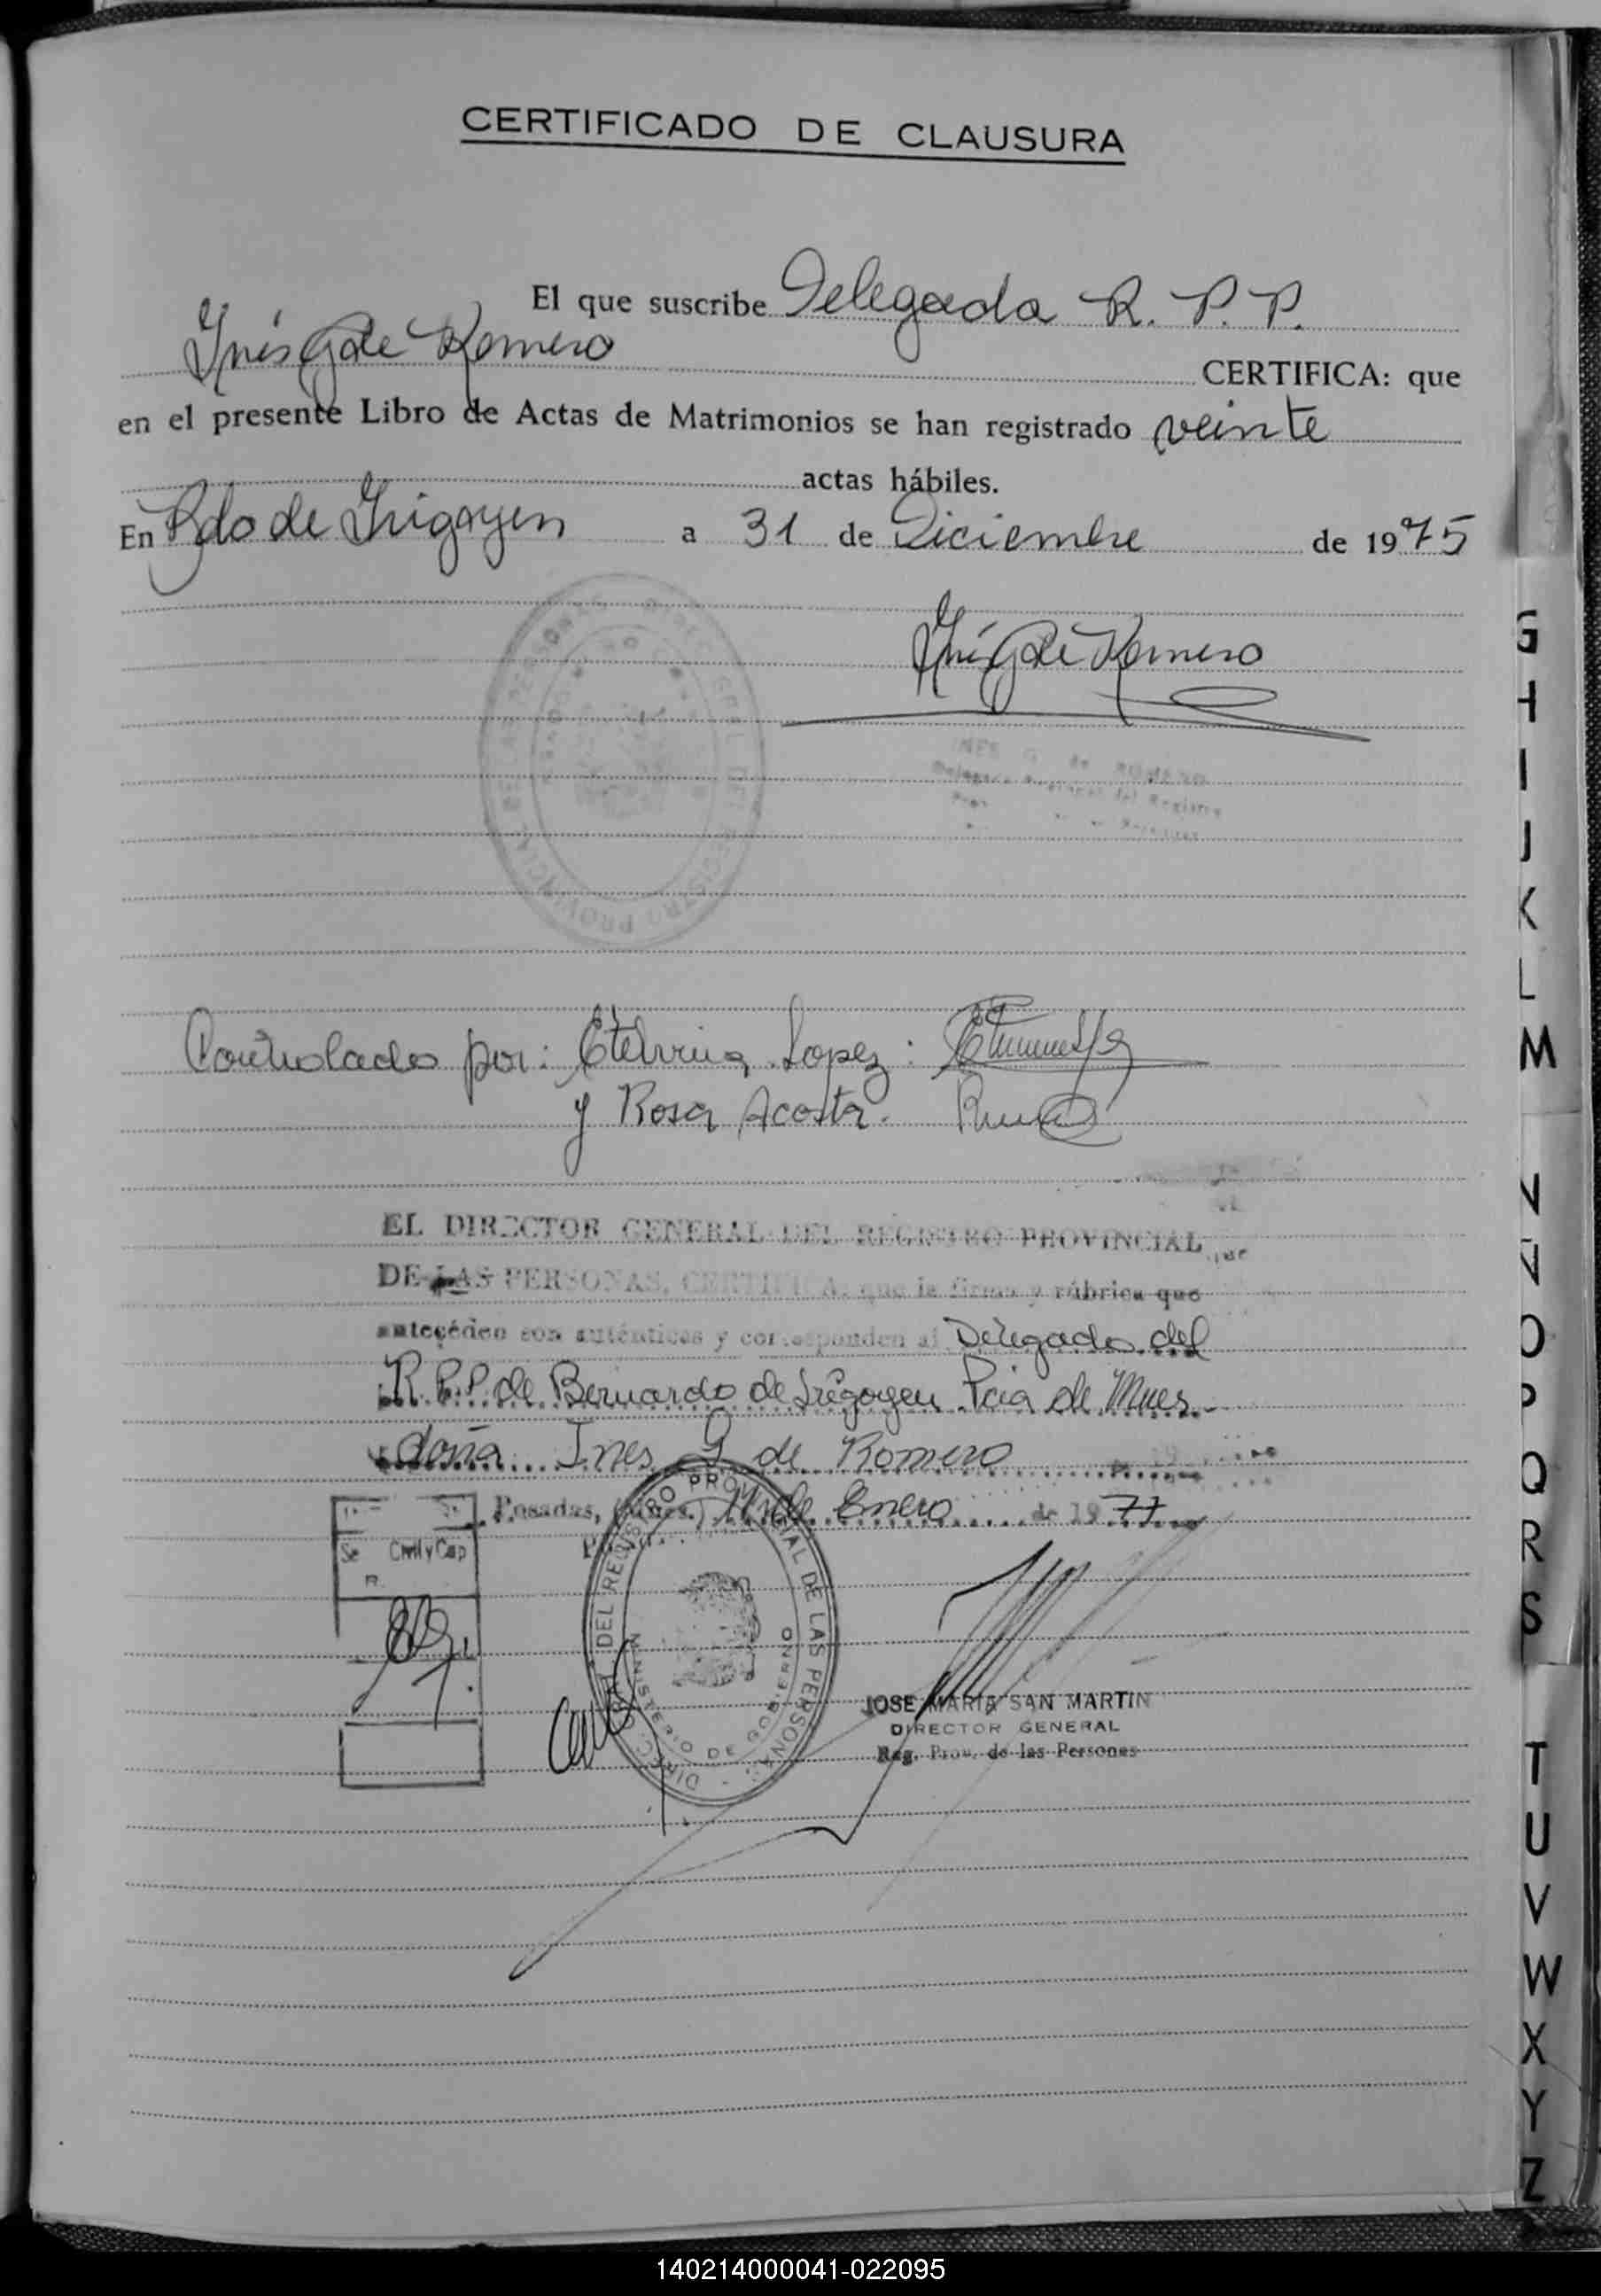 CERTIFICADO DE CLAUSURA
El que suscribe Delegada R. P. P.
Inés G de Romero CERTIFICA: que
en el presente Libro de Actas de Matrimonios se han registrado veinte
actas hábiles.
En Bdo de Irigoyen a 31 de Diciembre de 1975
Inés G de Romero
INES G de ROMERO
Controlado por: Etelvina Lopez:
y Rosa Acosta.
EL DIRECTOR GENERAL DEL REGISTRO PROVINCIAL
DE LAS PERSONAS, CERTIFICA, que la firma y rúbrica que
anteceden son auténticas y corresponden al Delegado del
R.P.P. de Bernardo de Irigoyen Pcia de Mnes
doña Ines G de Romero
Posadas, (Mnes.) 11 de Enero de 1977
Civil y Cap
DIREC. GRAL. DEL REGISTRO PROVINCIAL DE LAS PERSONAS
MINISTERIO DE GOBIERNO
JOSE MARIA SAN MARTIN
DIRECTOR GENERAL
Reg. Prov. de las Personas
G
H
I
J
K
L
M
N
Ñ
O
P
Q
R
S
T
U
V
W
X
Y
Z
140214000041-022095